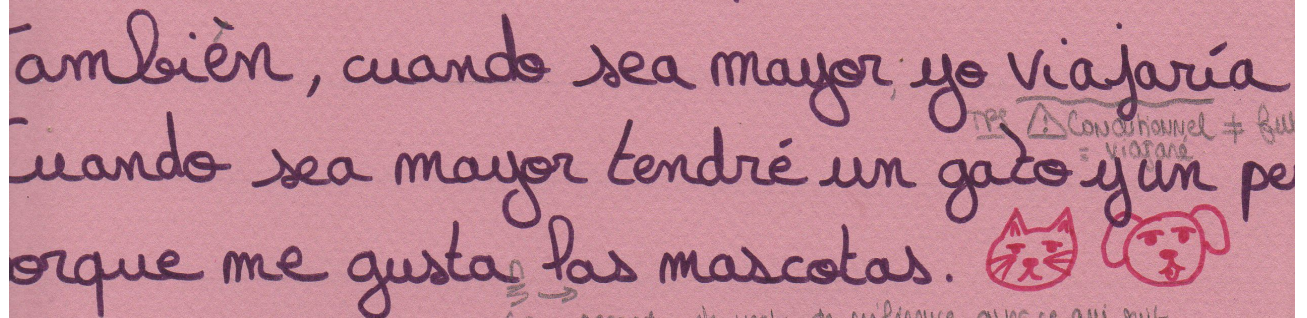 ambièn, cuando sea mayor, yo viajaría
TPS ⚠ Conditionnel ≠
= viajaré
uando sea mayor tendré un gato y un pe
orque me gusta las mascotas.
n